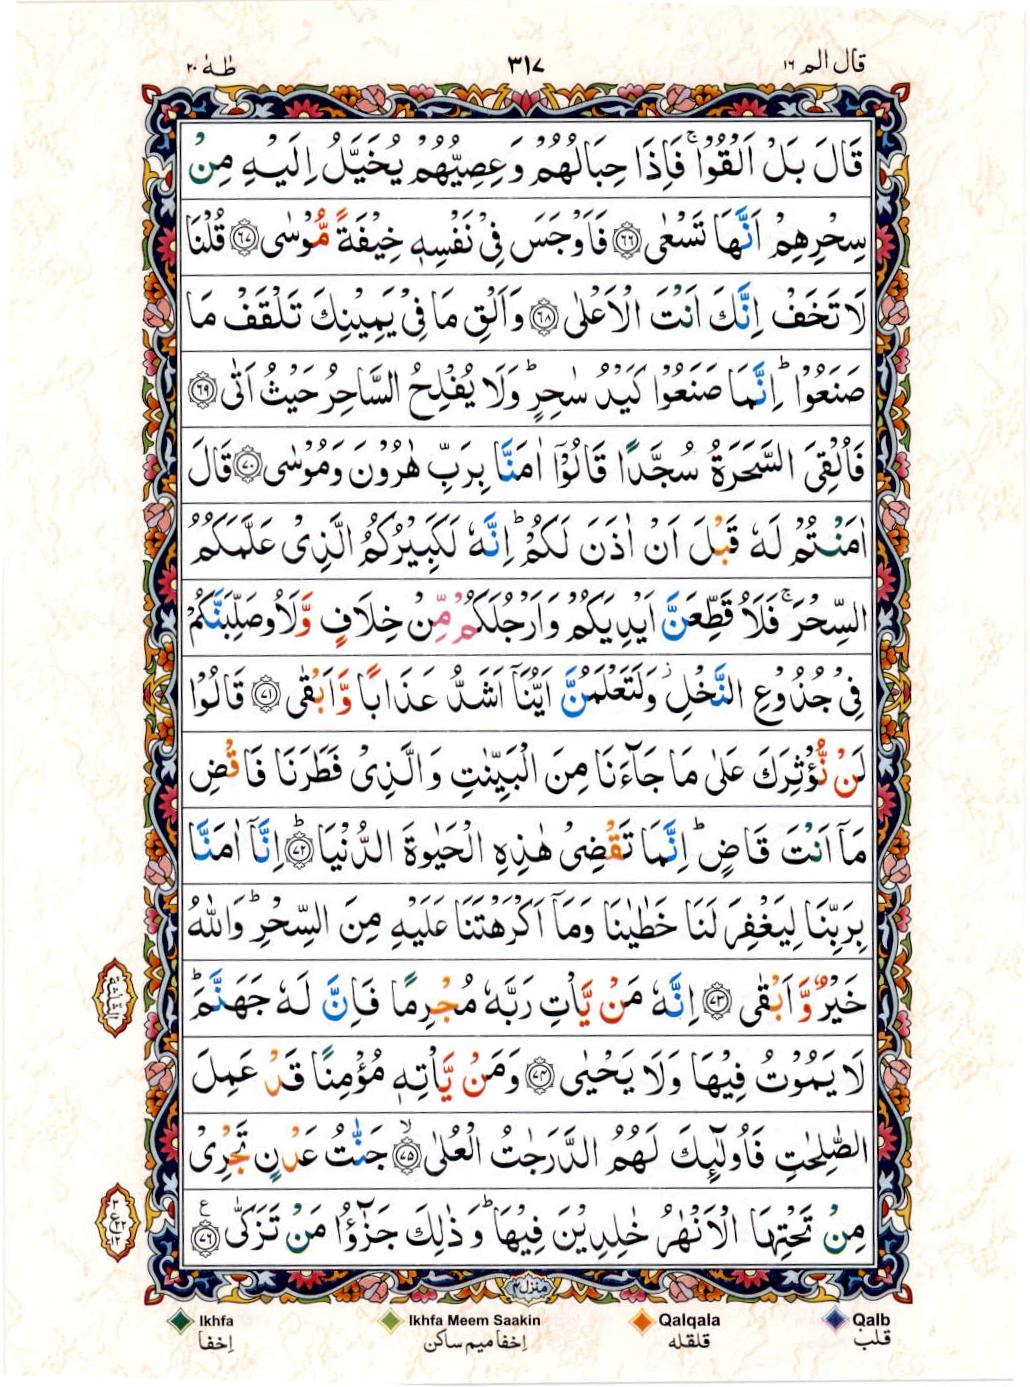 قال الم ١٦ ٣١٧ طٰهٰ ٢٠
قَالَ بَلْ اَلْقُوْا ۚ فَاِذَا حِبَالُهُمْ وَعِصِيُّهُمْ يُخَيَّلُ اِلَيْهِ مِنْ
سِحْرِهِمْ اَنَّهَا تَسْعٰى ﴿٦٦﴾ فَاَوْجَسَ فِىْ نَفْسِهٖ خِيْفَةً مُّوْسٰى ﴿٦٧﴾ قُلْنَا
لَا تَخَفْ اِنَّكَ اَنْتَ الْاَعْلٰى ﴿٦٨﴾ وَاَلْقِ مَا فِىْ يَمِيْنِكَ تَلْقَفْ مَا
صَنَعُوْا ؕ اِنَّمَا صَنَعُوْا كَيْدُ سٰحِرٍ ؕ وَلَا يُفْلِحُ السَّاحِرُ حَيْثُ اَتٰى ﴿٦٩﴾
فَاُلْقِىَ السَّحَرَةُ سُجَّدًا قَالُوْۤا اٰمَنَّا بِرَبِّ هٰرُوْنَ وَمُوْسٰى ﴿٧٠﴾ قَالَ
اٰمَنْتُمْ لَهٗ قَبْلَ اَنْ اٰذَنَ لَكُمْ ؕ اِنَّهٗ لَكَبِيْرُكُمُ الَّذِىْ عَلَّمَكُمُ
السِّحْرَ ۚ فَلَاُقَطِّعَنَّ اَيْدِيَكُمْ وَاَرْجُلَكُمْ مِّنْ خِلَافٍ وَّلَاُوصَلِّبَنَّكُمْ
فِىْ جُذُوْعِ النَّخْلِ ۫ وَلَتَعْلَمُنَّ اَيُّنَاۤ اَشَدُّ عَذَابًا وَّاَبْقٰى ﴿٧١﴾ قَالُوْا
لَنْ نُّؤْثِرَكَ عَلٰى مَا جَآءَنَا مِنَ الْبَيِّنٰتِ وَالَّذِىْ فَطَرَنَا فَاقْضِ
مَاۤ اَنْتَ قَاضٍ ؕ اِنَّمَا تَقْضِىْ هٰذِهِ الْحَيٰوةَ الدُّنْيَا ؕ ﴿٧٢﴾ اِنَّاۤ اٰمَنَّا
بِرَبِّنَا لِيَغْفِرَ لَنَا خَطٰيٰنَا وَمَاۤ اَكْرَهْتَنَا عَلَيْهِ مِنَ السِّحْرِ ؕ وَاللّٰهُ
خَيْرٌ وَّاَبْقٰى ﴿٧٣﴾ اِنَّهٗ مَنْ يَّاْتِ رَبَّهٗ مُجْرِمًا فَاِنَّ لَهٗ جَهَنَّمَ ؕ
لَا يَمُوْتُ فِيْهَا وَلَا يَحْيٰى ﴿٧٤﴾ وَمَنْ يَّاْتِهٖ مُؤْمِنًا قَدْ عَمِلَ
الصّٰلِحٰتِ فَاُولٰٓئِكَ لَهُمُ الدَّرَجٰتُ الْعُلٰى ۙ ﴿٧٥﴾ جَنّٰتُ عَدْنٍ تَجْرِىْ
مِنْ تَحْتِهَا الْاَنْهٰرُ خٰلِدِيْنَ فِيْهَا ؕ وَذٰلِكَ جَزٰٓؤُا مَنْ تَزَكّٰى ﴿٧٦﴾ ع
٣
ع ٢٢
١٢
منزل ٤
Ikhfa Ikhfa Meem Saakin Qalqala Qalb
اِخفا اِخفا میم ساکن قلقله قلب